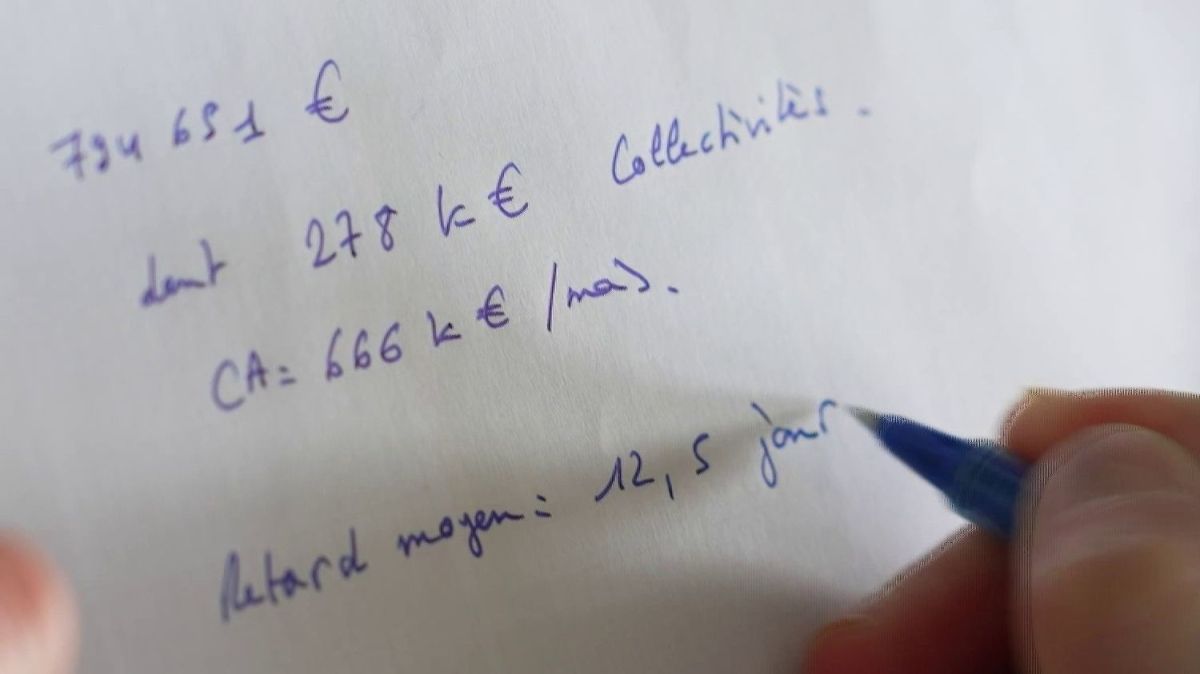 794 651 €
dont 278 k€ Collectivités.
CA= 666 k€ /mois.
Retard moyen: 12,5 jour